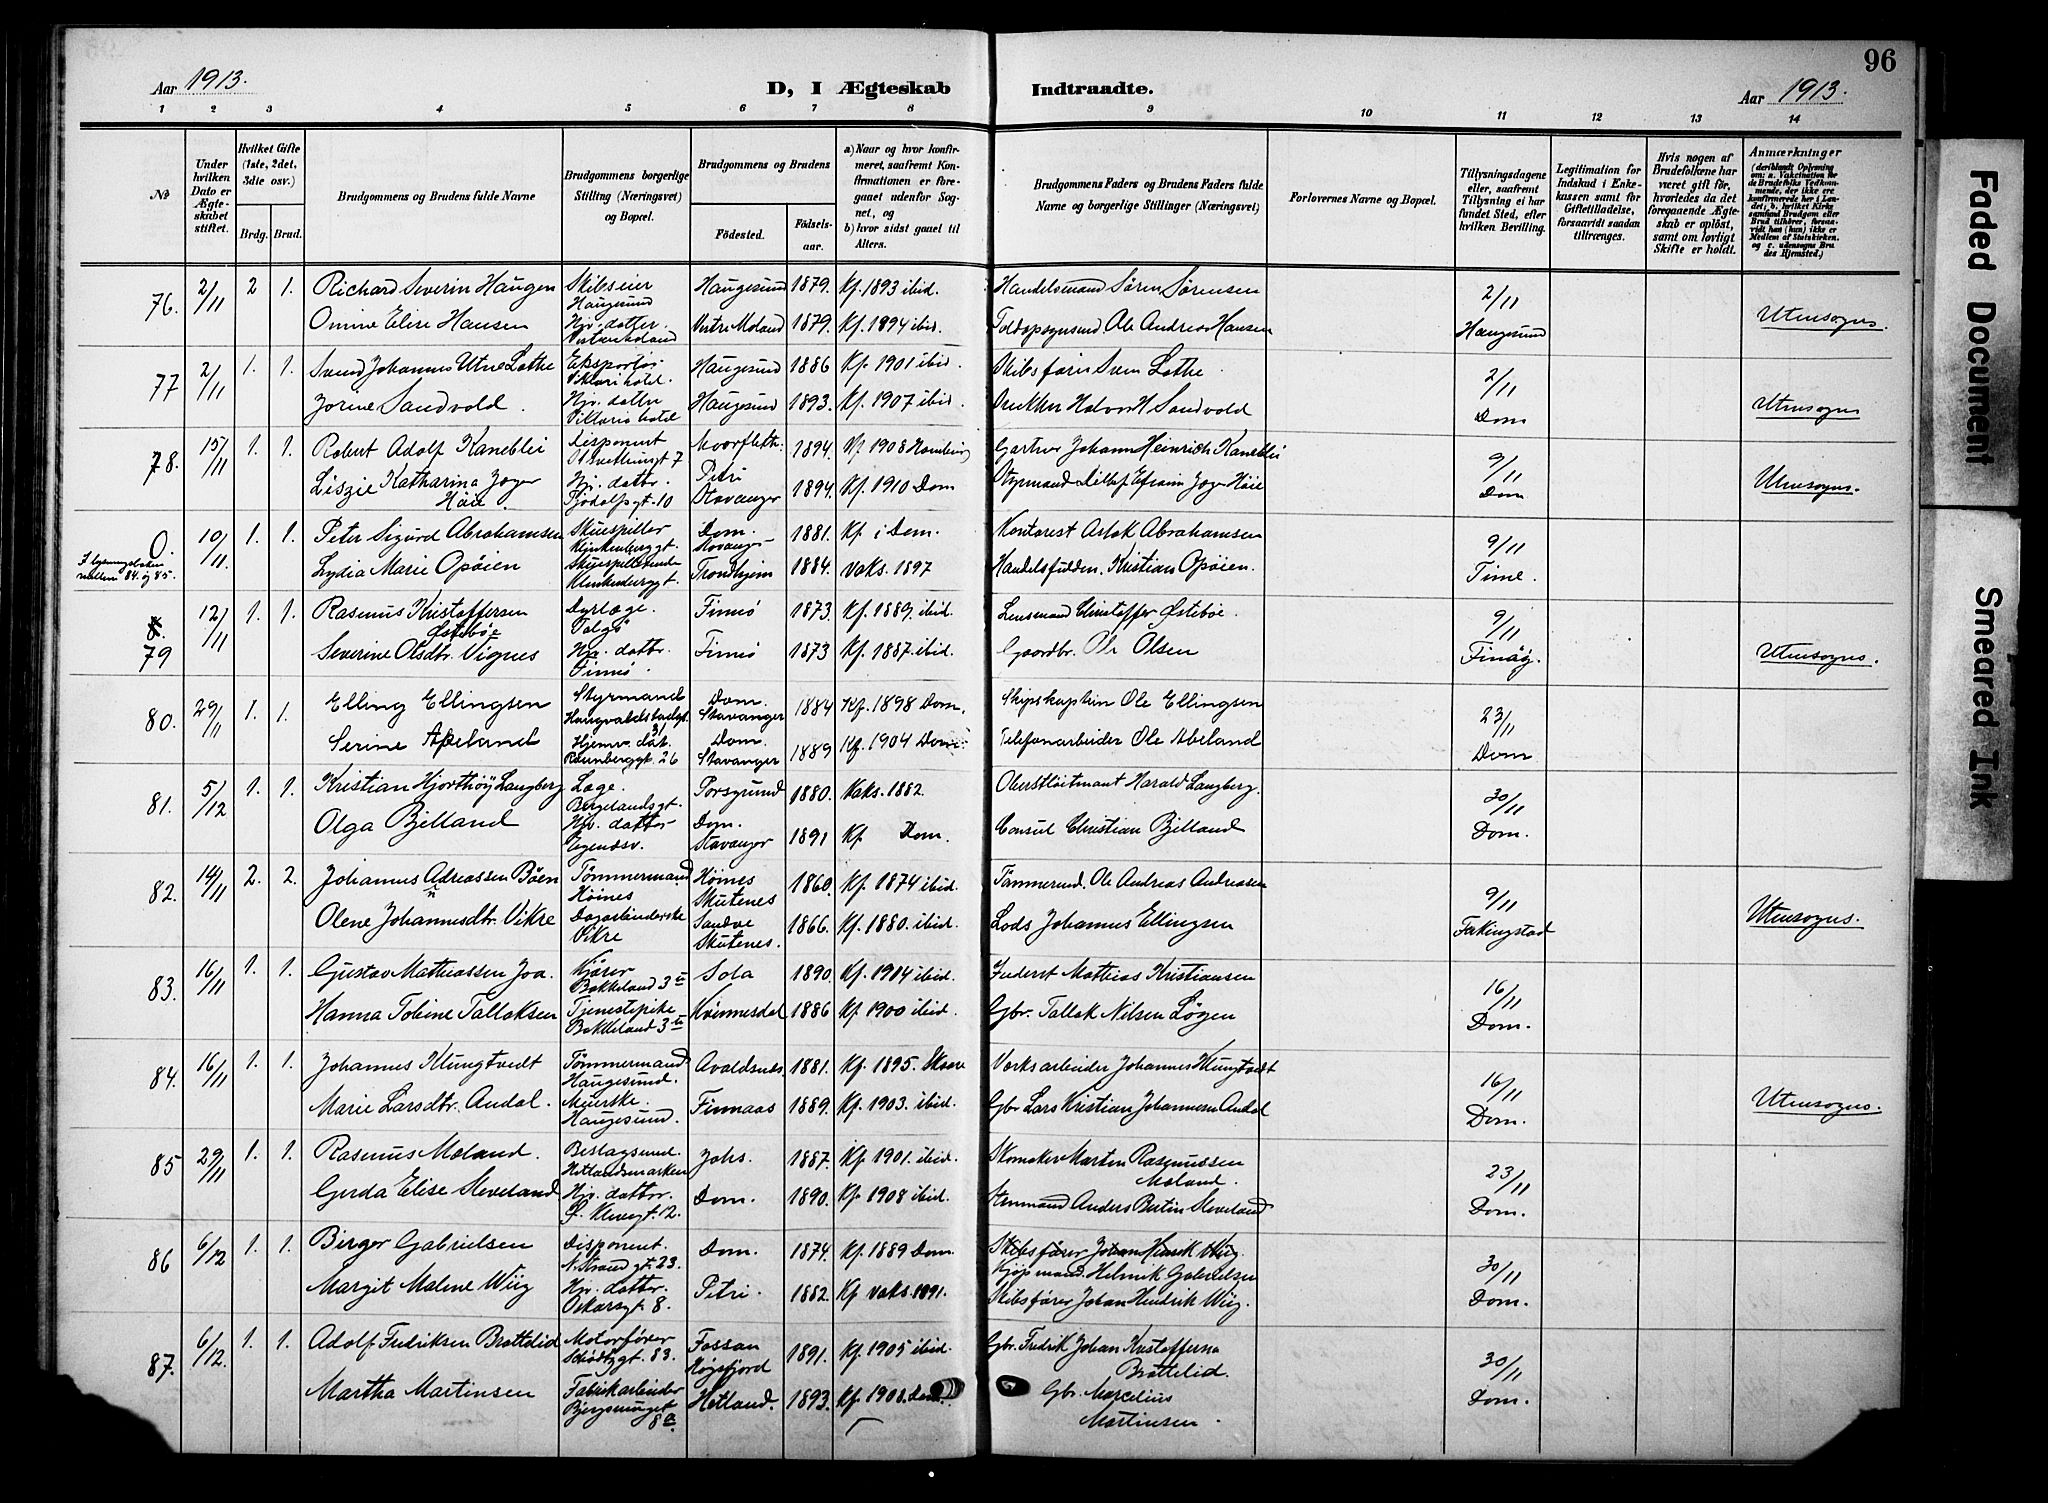 96
Aar 1913.
D, I Ægteskab Indtraadte.
Aar 1913.
1 2 3 4 5 6 7 8 9 10 11 12 13 14
No
Under hvilken Dato er Ægteskabet stiftet.
Hvilket Gifte (1ste, 2det, 3die osv.)
Brdg. Brud.
Brudgommens og Brudens fulde Navne
Brudgommens borgerlige Stilling (Næringsvei) og Bopæl.
Brudgommens og Brudens
Fødested. Fødselsaar.
a) Naar og hvor konfirmeret, saafremt Konfirmationen er foregaaet udenfor Sognet, og
b) hvor sidst gaaet til Alters.
Brudgommens Faders og Brudens Faders fulde Navne og borgerlige Stillinger (Næringsvei)
Forlovernes Navne og Bopæl.
Tillysningsdagene eller, saafremt Tillysning ei har fundet Sted, efter hvilken Bevilling.
Legitimation for Indskud i Enkekassen samt for Giftetilladelse, forsaavidt saadan tiltrænges.
Hvis nogen af Brudefolkene har været gift før, hvorledes da det foregaaende Ægteskab er opløst, samt om lovligt Skifte er holdt.
Anmærkninger
(deriblandt Oplysning om: a. Vaccination for de Brudefolks Vedkommende, der ikke ere konfirmerede her i Landet; b. hvilket Kirkesamfund Brudgom eller Brud tilhører, forsaavidt han (hun) ikke er Medlem af Statskirken, og c. udensogns Brudes Hjemsted.)
76. 2/11 2 1. Richard Severin Haugen Skibseier Haugesund Haugesund 1879. Kf. 1893 ibid. Handelsmand Søren Sørensen 2/11 Haugesund Utensogns.
Omine Elise Hansen Hjv. datter Vestre Moland 1879. Kf. 1894 ibid. Toldopsynsmd Ole Andreas Hansen
77 2/11 1. 1. Svend Johannes Utne Lothe Eksportør Viktoria hotel. Haugesund 1886 Kf. 1901 ibid. Skibsfører Sven Lothe. 2/11 Dom Utensogns
Jorine Sandvold. Hjv. datter Viktoria hotel Haugesund 1893. Kf. 1907 ibid. Snekker Halvor H Sandvold
78. 15/11 1. 1. Robert Adolf Kaneblei Disponent 1894. Kf 1908 Hamburg Gartner Johann Heinrich Kaneblei 9/11 Dom Utensogns.
Liszie Katharina Jæger Høie. Hjv. datter. Tjodolfsgt. 10 Petri Stavanger 1894. Kf. 1910 Dom Styrmand Ditlef Efraim Jæger Høie
0. 10/11. 1. 1. Peter Sigurd Abrahamsen Skuespiller Klinkenberggt. Dom. Stavanger 1881. Kf i Dom. Kontorist Aslak Abrahamsen 9/11 Time.
I lysningsboken mellem 84. og 85. Lydia Marie Opøien Skuespillerinde Klinkenberggt. Trondhjem 1884. vaks. 1897 Handelsfuldm. Kristian Opøien.
79 12/11 1. 1. Rasmus Kristoffersen Østebø Dyrlæge. Talgø Finnø 1873 Kf. 1889. ibid. Lensmand Christoffer Østebøe. 9/11 Finøy. Utensogns.
Severine Olsdtr. Vignes Hjv. dattr. Finnø. Finnø 1873 Kf. 1887. ibid. Gaardbr. Ole Olsen
80. 29/11 1. 1. Elling Ellingsen Styrmand Haugvaldstadgt. 31 Dom. Stavanger 1884 Kf. 1898 Dom. Skipskaptein Ole Ellingsen 23/11 Dom
Serine Abeland Hjemv. dat. Rosenberggt. 26 Dom. Stavanger 1889 Kf. 1904 Dom. Telefonarbeider Ole Abeland
81. 5/12 1. 1. Kristian Hjorthøy Langberg Læge. Bergelandsgt. Porsgrund 1880. Vaks. 1882. Oberstløitnant Harald Langberg. 30/11 Dom.
Olga Bjelland Hjv. datter Egenæsv. Dom. Stavanger 1891 Kf Dom. Consul Christian Bjelland
82. 14/11 2. 2. Johannes Adreassen Bøen Tømmermand Høines Høines Skutenes 1860. Kf. 1874 ibid. Tømmermd. Ole Andreas Andreasen 9/11 Falkingstad Utensogns.
n
Olene Johannesdtr. Vikre Dagarbeiderske Vikre Sandve Skutenes. 1866. Kf. 1880. ibid. Lods Johannes Ellingsen
83. 16/11 1. 1. Gustav Mathiassen Joa. Kjører Bakkeland 3 Sola 1890. Kf. 1914 ibid. Inderst Mathias Kristiansen 16/11 Dom.
Hanna Tobine Tallaksen Tjenestepike Bakkeland 3 Kvinnesdal 1886 Kf. 1900 ibid. Gbr. Tallak Nilsen Løgen
84. 16/11 1. 1. Johannes Klungtvedt Tømmermand Haugesund. Avaldsnes 1881. Kf. 1895. Skaare Verksarbeider Johannes Klungtvedt 16/11 Dom. Utensogns.
Marie Larsdtr. Andal. Haugesund. Finnaas 1889. Kf. 1903. ibid. Gbr Lars Kristian Johannesen Andal
85 29/11 1. 1. Rasmus Moland. Beslagsmd. Hetlandsmarken Johs. 1887. Kf. 1901. ibid. Skomaker Marten Rasmussen Moland. 23/11 Dom.
Gerda Elise Sleveland Hjv. datter. Dom. 1890. Kf. 1908 ibid. Stenmand Anders Bertin Sleveland
86 6/12 1. 1. Birger Gabrielsen Disponent. N. Strandgt. 23. Dom. 1874. Kf. 1889 Dom. Skibsfører Johan Henrik Wiig. 30/11 Dom.
Kjøpmand. Helmik Gabrielsen
Margit Malene Wiig Hjv. datter. Oskarsgt. 8. Petri. 1882. Kf vaks. 1891. Skibsfører Johan Hendrik Wiig.
87. 6/12. 1. 1. Adolf Fredriksen Brattelid Motorfører 83. Fossan Høgsfjord 1891. Kf. 1905 ibid. Gbr. Fredrik Johan Kristoffersen Brattelid. 30/11 Dom.
Martha Martinsen Fabrikarbeider 8 Hetland. 1893. Kf. 1908. Dom. Gbr. Marcelius Martinsen.
Faded Document
Smeared Ink